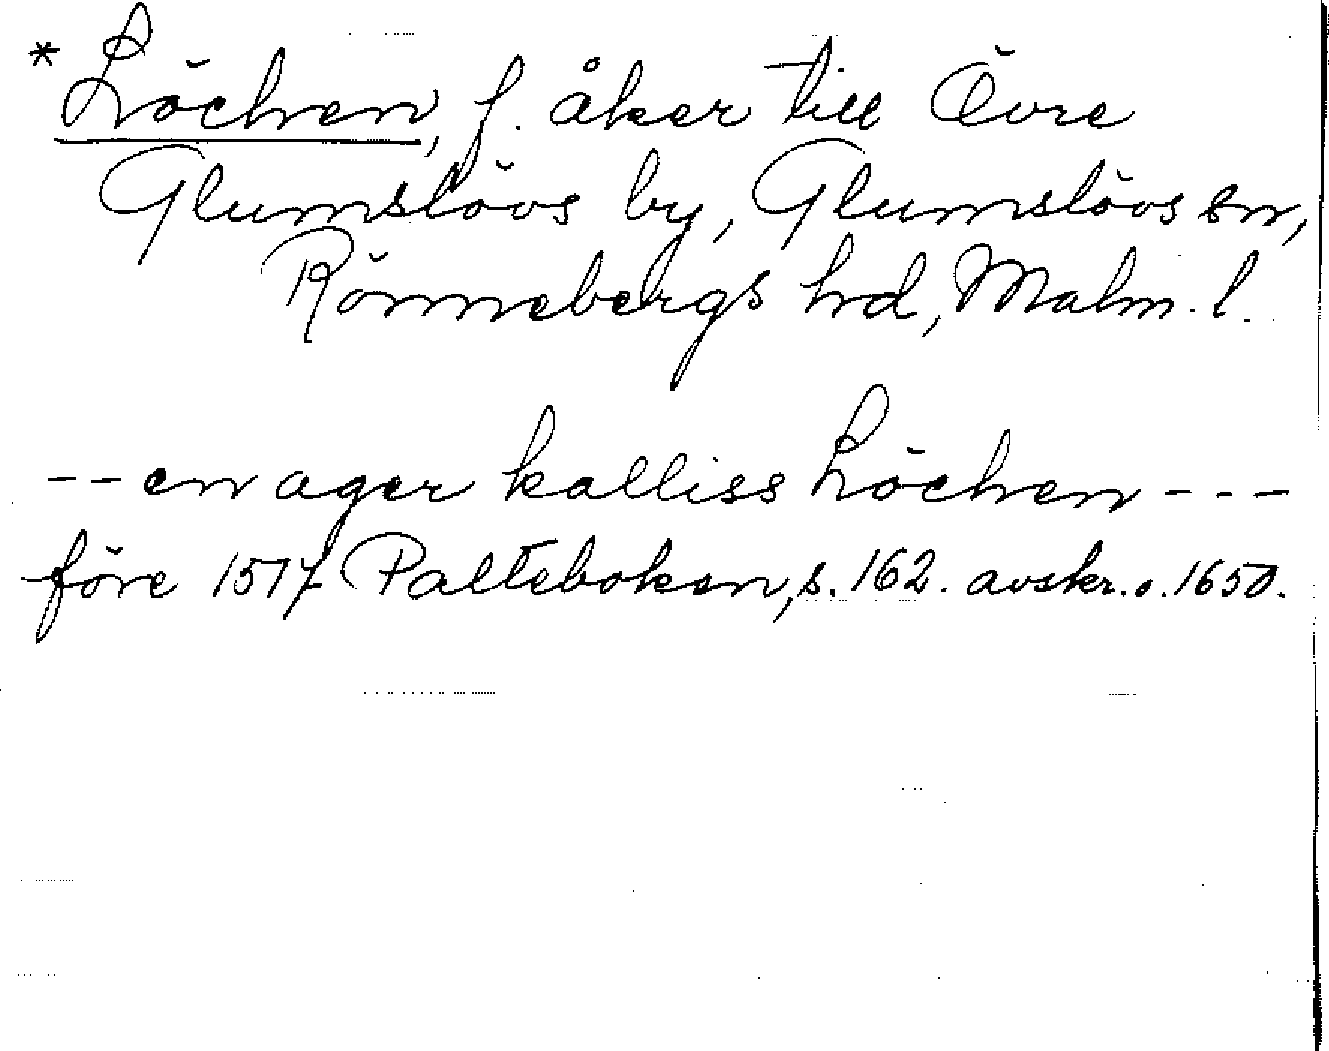 *Löchen, f. åker till Övre
Glumslövs by, Glumslövs sn,
Rönnebergs hd, Malm. l.
-- en ager kalliss Löchen ---
före 1517 Palteboken, s. 162. avskr. o. 1650.